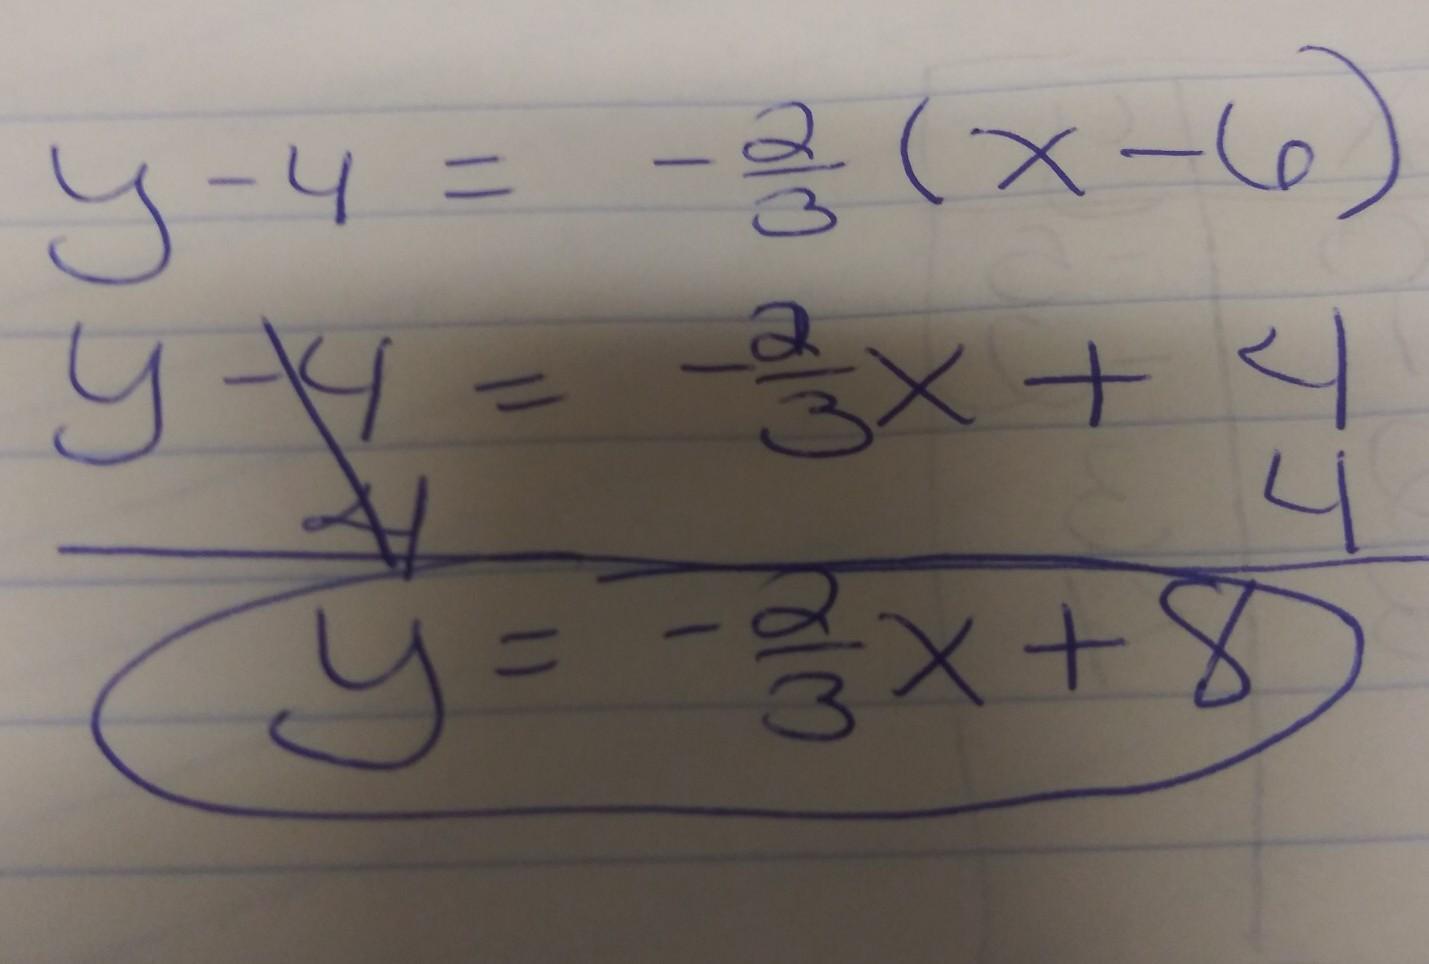 y - 4 = - 2/3 (x - 6)
y - 4 = - 2/3 x + 4
4 4
y = - 2/3 x + 8